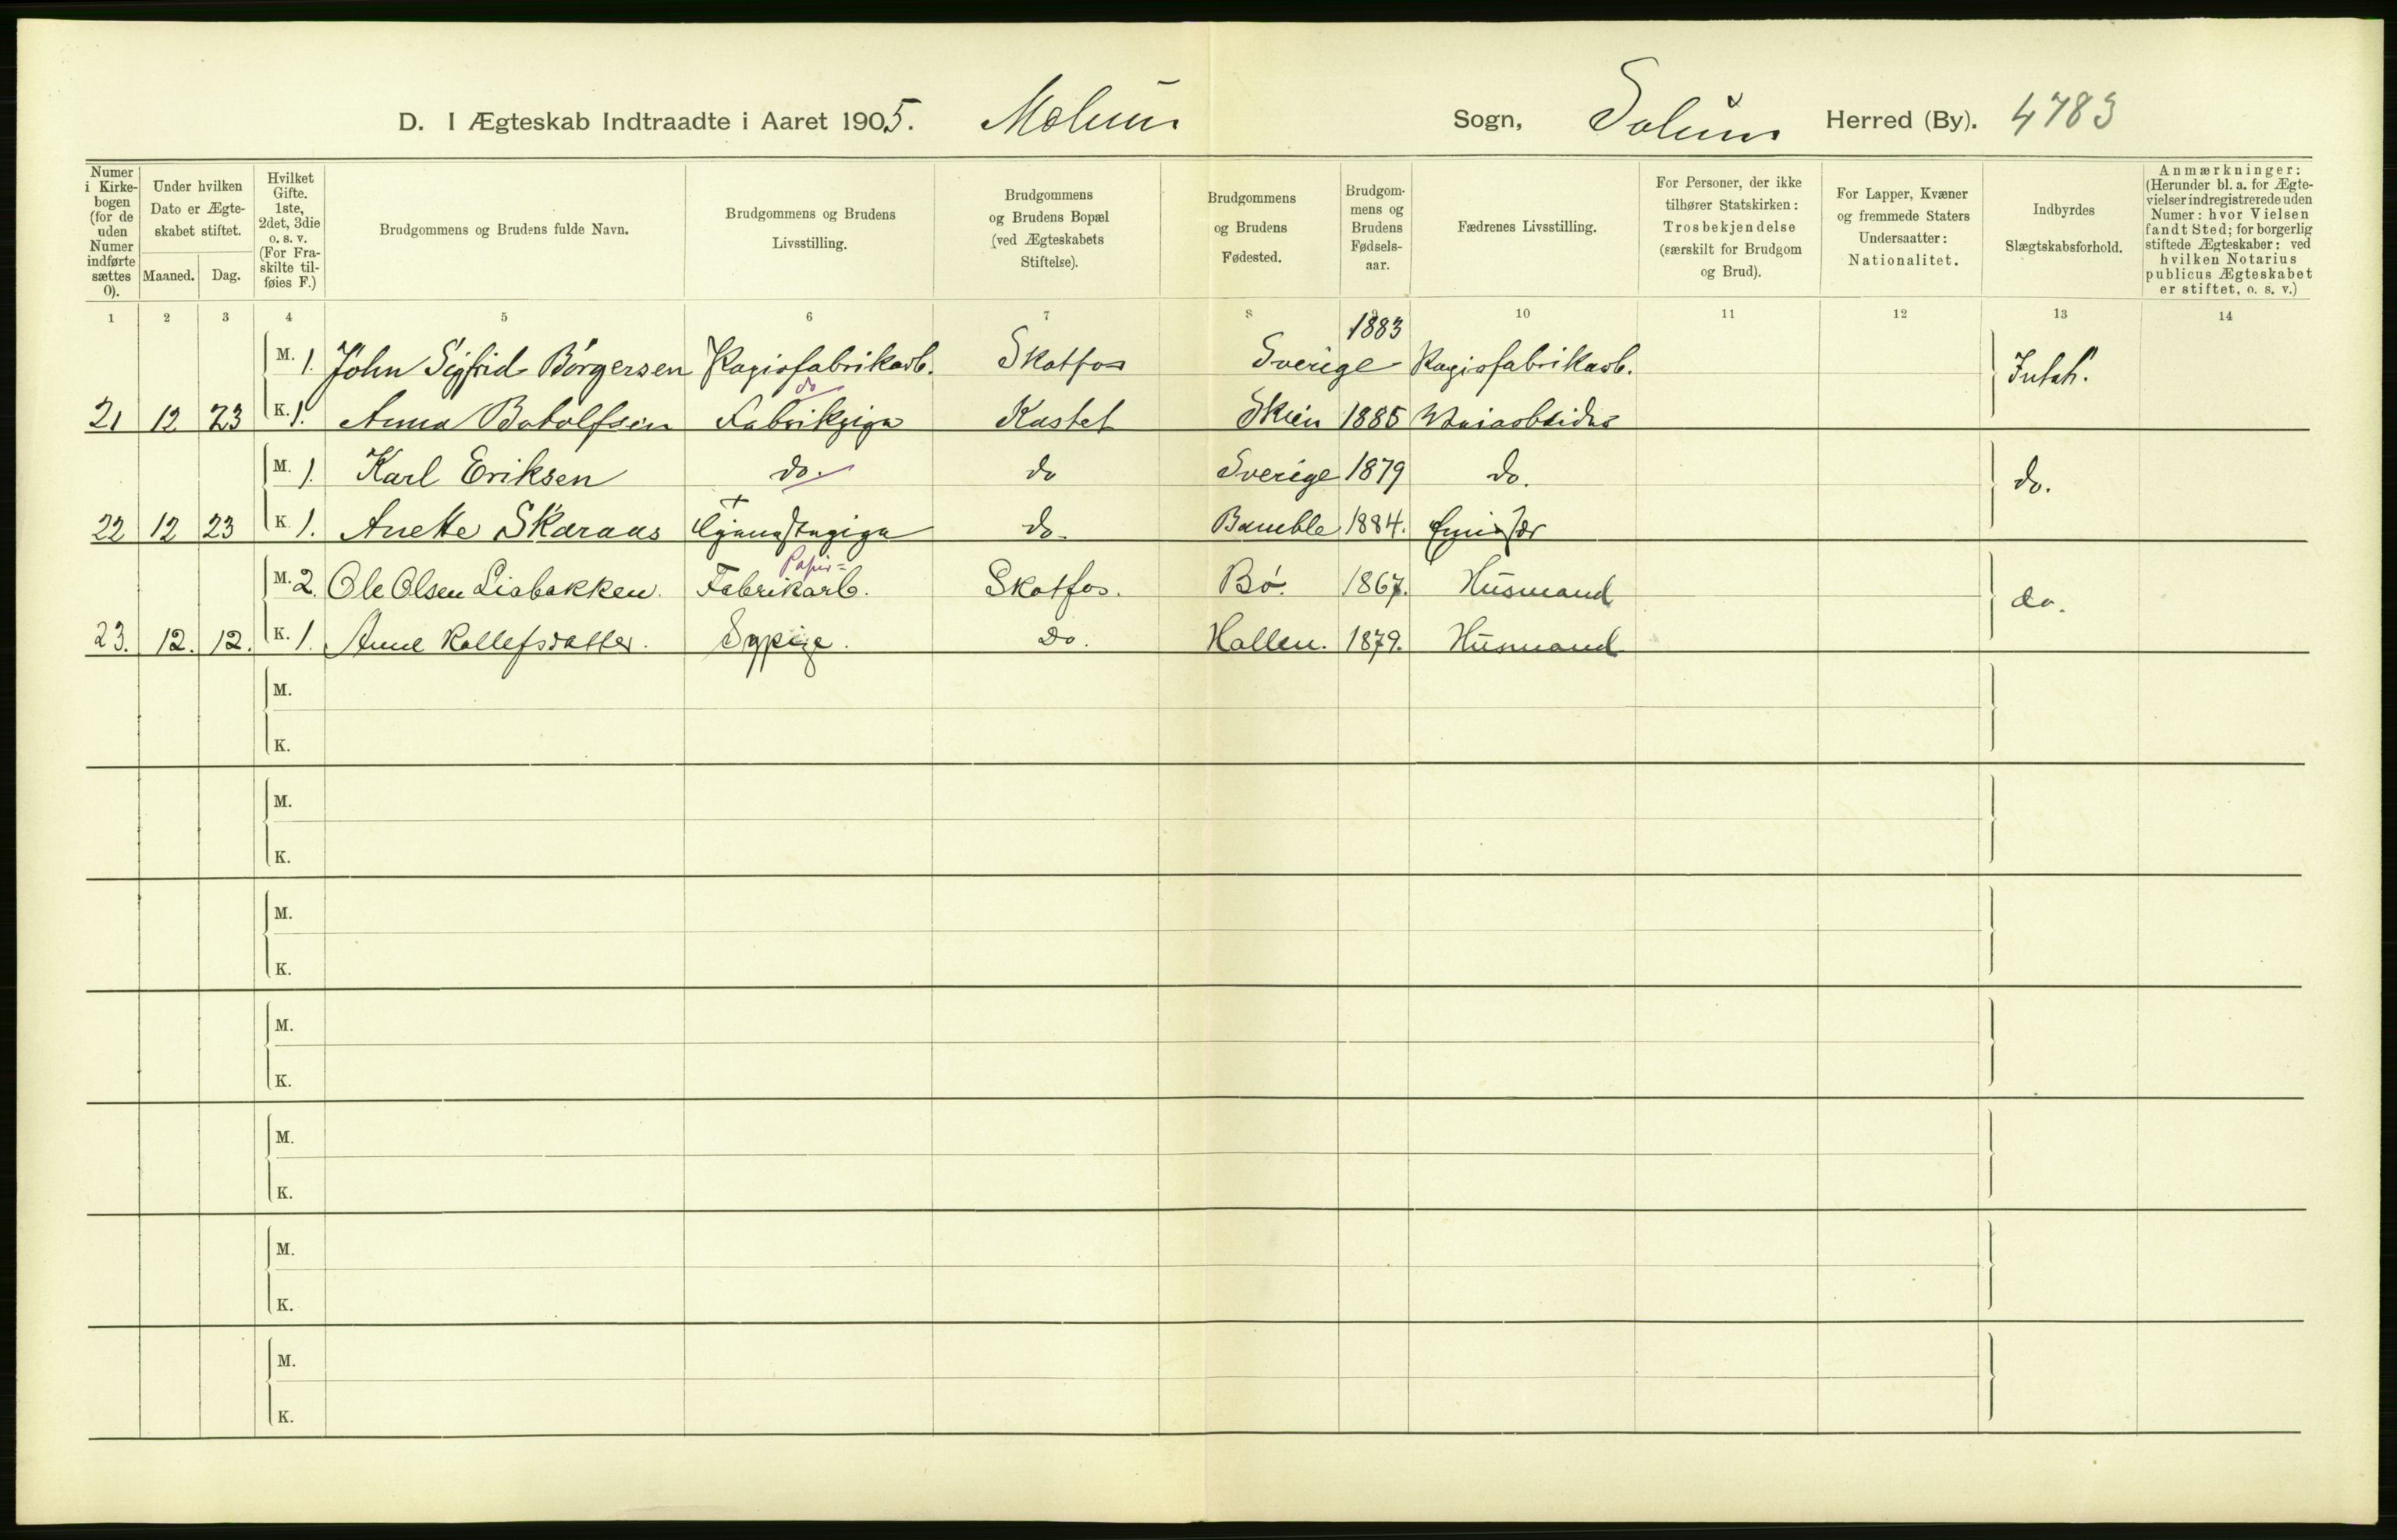 D. I Ægteskab Indtraadte i Aaret 1905. Mælum Sogn, Solum Herred (By). 4783
Numer i Kirkebogen (for de uden Numer indførte sættes 0).
Under hvilken Dato er Ægteskabet stiftet.
Maaned. Dag.
Hvilket Gifte. 1ste, 2det, 3die o. s. v. (For Fraskilte tilføies F.)
Brudgommens og Brudens fulde Navn.
Brudgommens og Brudens Livsstilling.
Brudgommens og Brudens Bopæl (ved Ægteskabets Stiftelse).
Brudgommens og Brudens Fødested.
Brudgommens og Brudens Fødselsaar.
Fædrenes Livsstilling.
For Personer, der ikke tilhører Statskirken: Trosbekjendelse (særskilt for Brudgom og Brud).
For Lapper, Kvæner og fremmede Staters Undersaatter: Nationalitet.
Indbyrdes Slægtskabsforhold.
Anmærkninger: (Herunder bl. a. for Ægtevielser indregistrerede uden Numer: hvor Vielsen fandt Sted; for borgerlig stiftede Ægteskaber: ved hvilken Notarius publicus Ægteskabet er stiftet, o. s. v.)
1 2 3 4 5 6 7 8 9 10 11 12 13 14
M. 1. John Sigfrid Börgersen Papirfabrikarb. Skotfos Sverige 1883 Papirfabrikarb. Intet.
do
21 12 23 K. 1. Anna Botolfsen Fabrikpige Kastet Skien 1885 Veiarbeider
M. 1. Karl Eriksen do. do Sverige 1879 do. do.
22 12 23 K. 1. Anette Skaraas Tjenestepige do. Bamble 1884.
Papir=
M. 2. Ole Olsen Liabakken. Fabrikarb. Skotfos. Bö. 1867. Husmand do.
23. 12. 12. K. 1. Anne Kollefsdatter. Sypige. Do. Hollen. 1879. Husmand
M.
K.
M.
K.
M.
K.
M.
K.
M.
K.
M.
K.
M.
K.